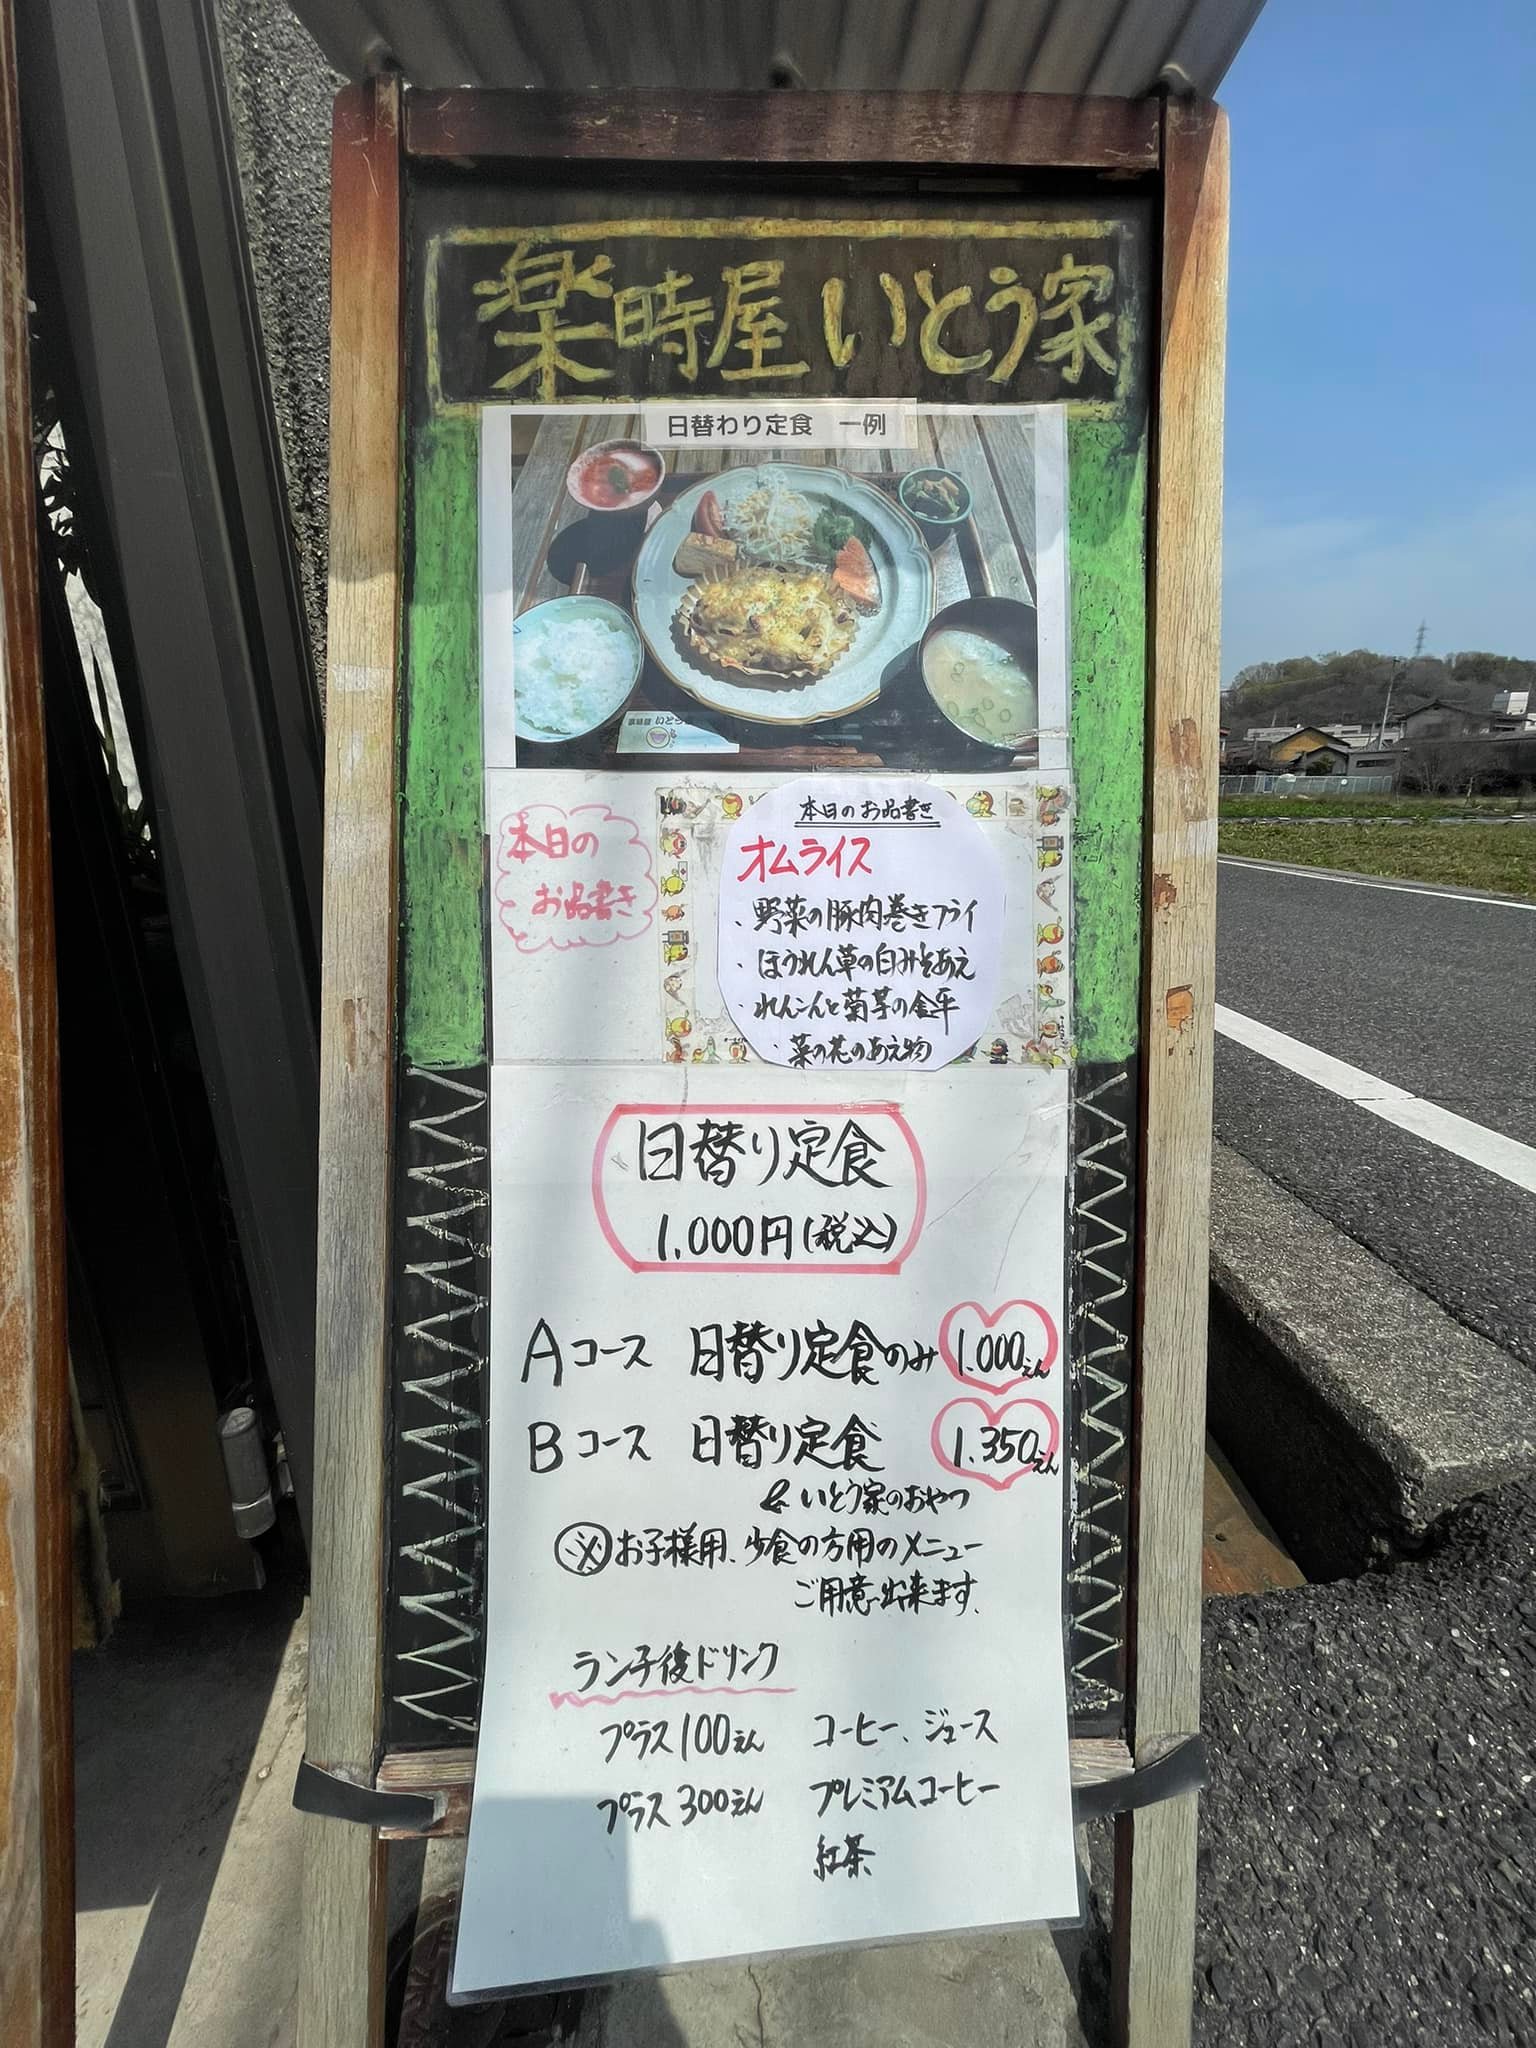 楽時屋いとう家
日替わり定食 一例
楽時屋 いとう
本日の
お品書き
本日のお品書き
オムライス
・野菜の豚肉巻きフライ
・ほうれん草の白みそあえ
・れんこんと菊芋の金平
・菜の花のあえ物
日替り定食
1.000円(税込)
Aコース 日替り定食のみ 1.000えん
Bコース 日替り定食 1.350えん
& いとう家のおやつ
※お子様用、少食の方用のメニュー
ご用意出来ます。
ランチ後ドリンク
プラス100えん コーヒー、ジュース
プラス300えん プレミアムコーヒー
紅茶